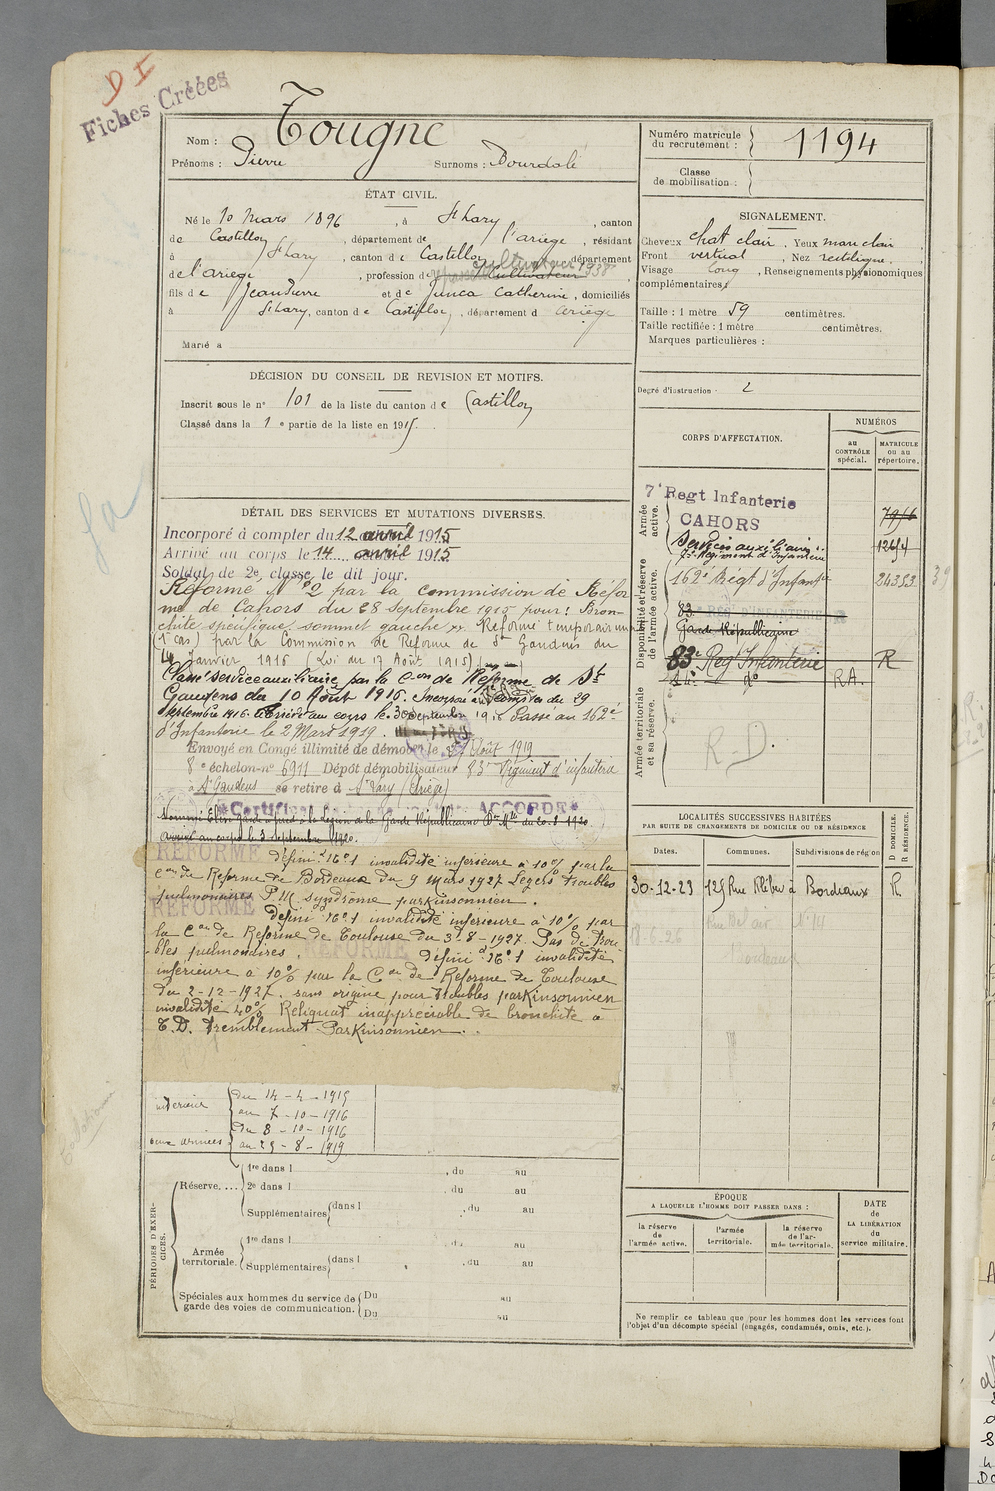 D I
Fiches Créées
Nom : Tougne
Prénoms : Pierre Surnoms : Dourdolé
ÉTAT CIVIL.
Né le 10 Mars 1896, à St Lary, canton
de Castillon, département de l'ariege, résidant
à St Lary, canton de Castillon, département
de l'ariege, profession de cultivateur 1938
fils de Jean Pierre et de Junca Catherine, domiciliés
à St Lary, canton de Castillon, département d ariège
Marié à
DÉCISION DU CONSEIL DE REVISION ET MOTIFS.
Inscrit sous le n° 101 de la liste du canton de Castillon
Classé dans la 1e partie de la liste en 1915.
DÉTAIL DES SERVICES ET MUTATIONS DIVERSES.
Incorporé à compter du 12 avril 1915
Arrivé au corps le 14 avril 1915
Soldat de 2e classe le dit jour.
Réformé N° 2 par la commission de Réfor
me de Cahors du 28 Septembre 1915 pour : Bron-
chite spécifique sommet gauche. Réformé temporairement
(1er cas) par la Commission de Réforme de St Gaudens du
14 Janvier 1916 (Loi du 17 Août 1915)
Classé service auxiliaire par la Con de Réforme de St
Gaudens du 10 Août 1916. Incorporé à compter du 29
septembre 1916. Arrivé au corps le 30 Septembre 1916 Passé au 162e
d'Infanterie le 2 Mars 1919.
Envoyé en Congé illimité de démob. le Août 1919
8e échelon n° 6911 Dépôt démobilisateur 83e Régiment d'infanterie
à St Gaudens se retire à St Lary (Ariège)
Certificat ACCORDÉ
Nommé Elève Garde à pied à la Légion de la Garde Républicaine Don Mlle du 20-8-1920.
arrivé au corps le 3 septembre 1920.
RÉFORMÉ définif N°1 invalidité inferieure à 10% par la
Con de Réforme de Bordeaux du 9 Mars 1927 Légers troubles
pulmonaires P.M. syndrome parkinsonnien.
RÉFORMÉ défini N°1 invalidité inferieure à 10% par
la Con de Réforme de Toulouse du 3-8-1927. Pas de trou-
bles pulmonaires. RÉFORMÉ défini N°1 invalidité
inférieure à 10% par la Con de Réforme de Toulouse
du 2-12-1927. sans origine pour troubles parkinsonnien
invalidité 40% Reliquat inappréciable de bronchite à
T.D. Tremblement Parkinsonnien.
intérieur du 14-4-1915
au 7-10-1916
aux armées du 8-10-1916
au 29-8-1919
PÉRIODES D'EXERCICES.
Réserve.... 1re dans l , du au
2e dans l , du au
Supplémentaires dans l , du au
Armée territoriale. 1re dans l , du au
Supplémentaires dans l , du au
Spéciales aux hommes du service de garde des voies de communication. Du au
Du au
Numéro matricule du recrutement : 1194
Classe de mobilisation :
SIGNALEMENT.
Cheveux chat clair. Yeux mar clair,
Front vertical, Nez rectiligne.
Visage long, Renseignements physionomiques
complémentaires :
Taille : 1 mètre 59 centimètres.
Taille rectifiée : 1 mètre centimètres.
Marques particulières :
Degré d'instruction : 2
CORPS D'AFFECTATION.
NUMÉROS
au CONTRÔLE spécial.
MATRICULE ou au répertoire.
Armée active.
7e Regt Infanterie
CAHORS
Services auxiliaires
7e Régiment d'Infanterie 12614
Disponibilité et réserve de l'armée active.
162e Régt d'Infanterie 24353
83 REG. D'INFANTERIE
Garde Républicaine
83e Reg. Infanterie R
do R.A.
Armée territoriale et sa réserve.
R-D.
LOCALITÉS SUCCESSIVES HABITÉES
PAR SUITE DE CHANGEMENTS DE DOMICILE OU DE RÉSIDENCE
Dates. Communes. Subdivisions de région D DOMICILE. R RÉSIDENCE.
30-12-23 125 Rue Kléber à Bordeaux R.
18-6-26 Rue Bel air N° 14
Bordeaux
ÉPOQUE
A LAQUELLE L'HOMME DOIT PASSER DANS :
la réserve de l'armée active.
l'armée territoriale.
la réserve de l'armée territoriale.
DATE de LA LIBÉRATION du service militaire.
Ne remplir ce tableau que pour les hommes dont les services font
l'objet d'un décompte spécial (engagés, condamnés, omis, etc.).